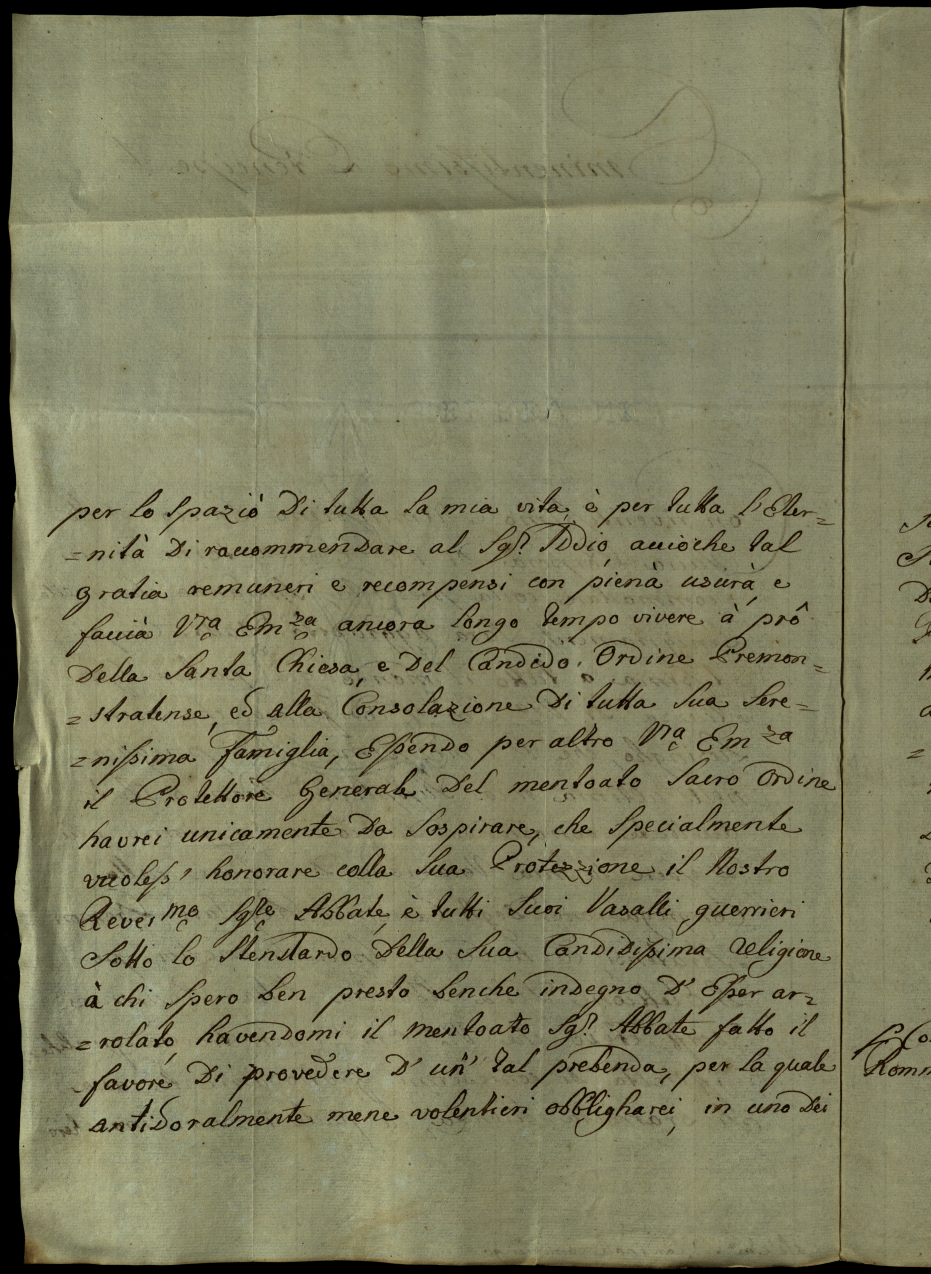 per lo spazió Di tutta la mia vita, è per tutta l'Eter=
=nità Di racommendare al Sg.r Iddio, acciòche tal
gratia remuneri e recompensi con pienà usurà, e
faccià Vra Emza ancora longo tempo vivere à prô
Della Santa Chiesa, e Del Candido Ordine Premon=
=stratense, ed alla Consolazione Di tutta Sua Sere=
=nissima Famiglia, Essendo per altro Vra Emza
il Protettore Generale Del mentoato Sacro Ordine
havrei unicamente Da Sospirare, che specialmente
vuoless' honorare colla Sua Protezzione il Nostro
Revermo Sgre Abbate, è tutti Suoi Vasalli guerrieri
Sotto lo Stenstardo Della Sua Candidissima religione
à chi spero ben presto benche indegno D' Esser ar=
=rolato, havendomi il mentoato Sg.r Abbate fatto il
favore Di provedere D' un' tal prebenda, per la quale
antidoralmente mene volentieri obbligharei, in uno Dei